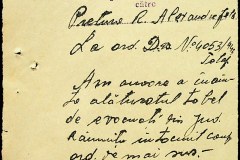 către
Pretura R. Alexandria
La ord. Dvs No 4053/
Am onoare a înain-
ta alăturatul tabel
de evacuați din jud.
întocmit conf.
ord. de mai sus